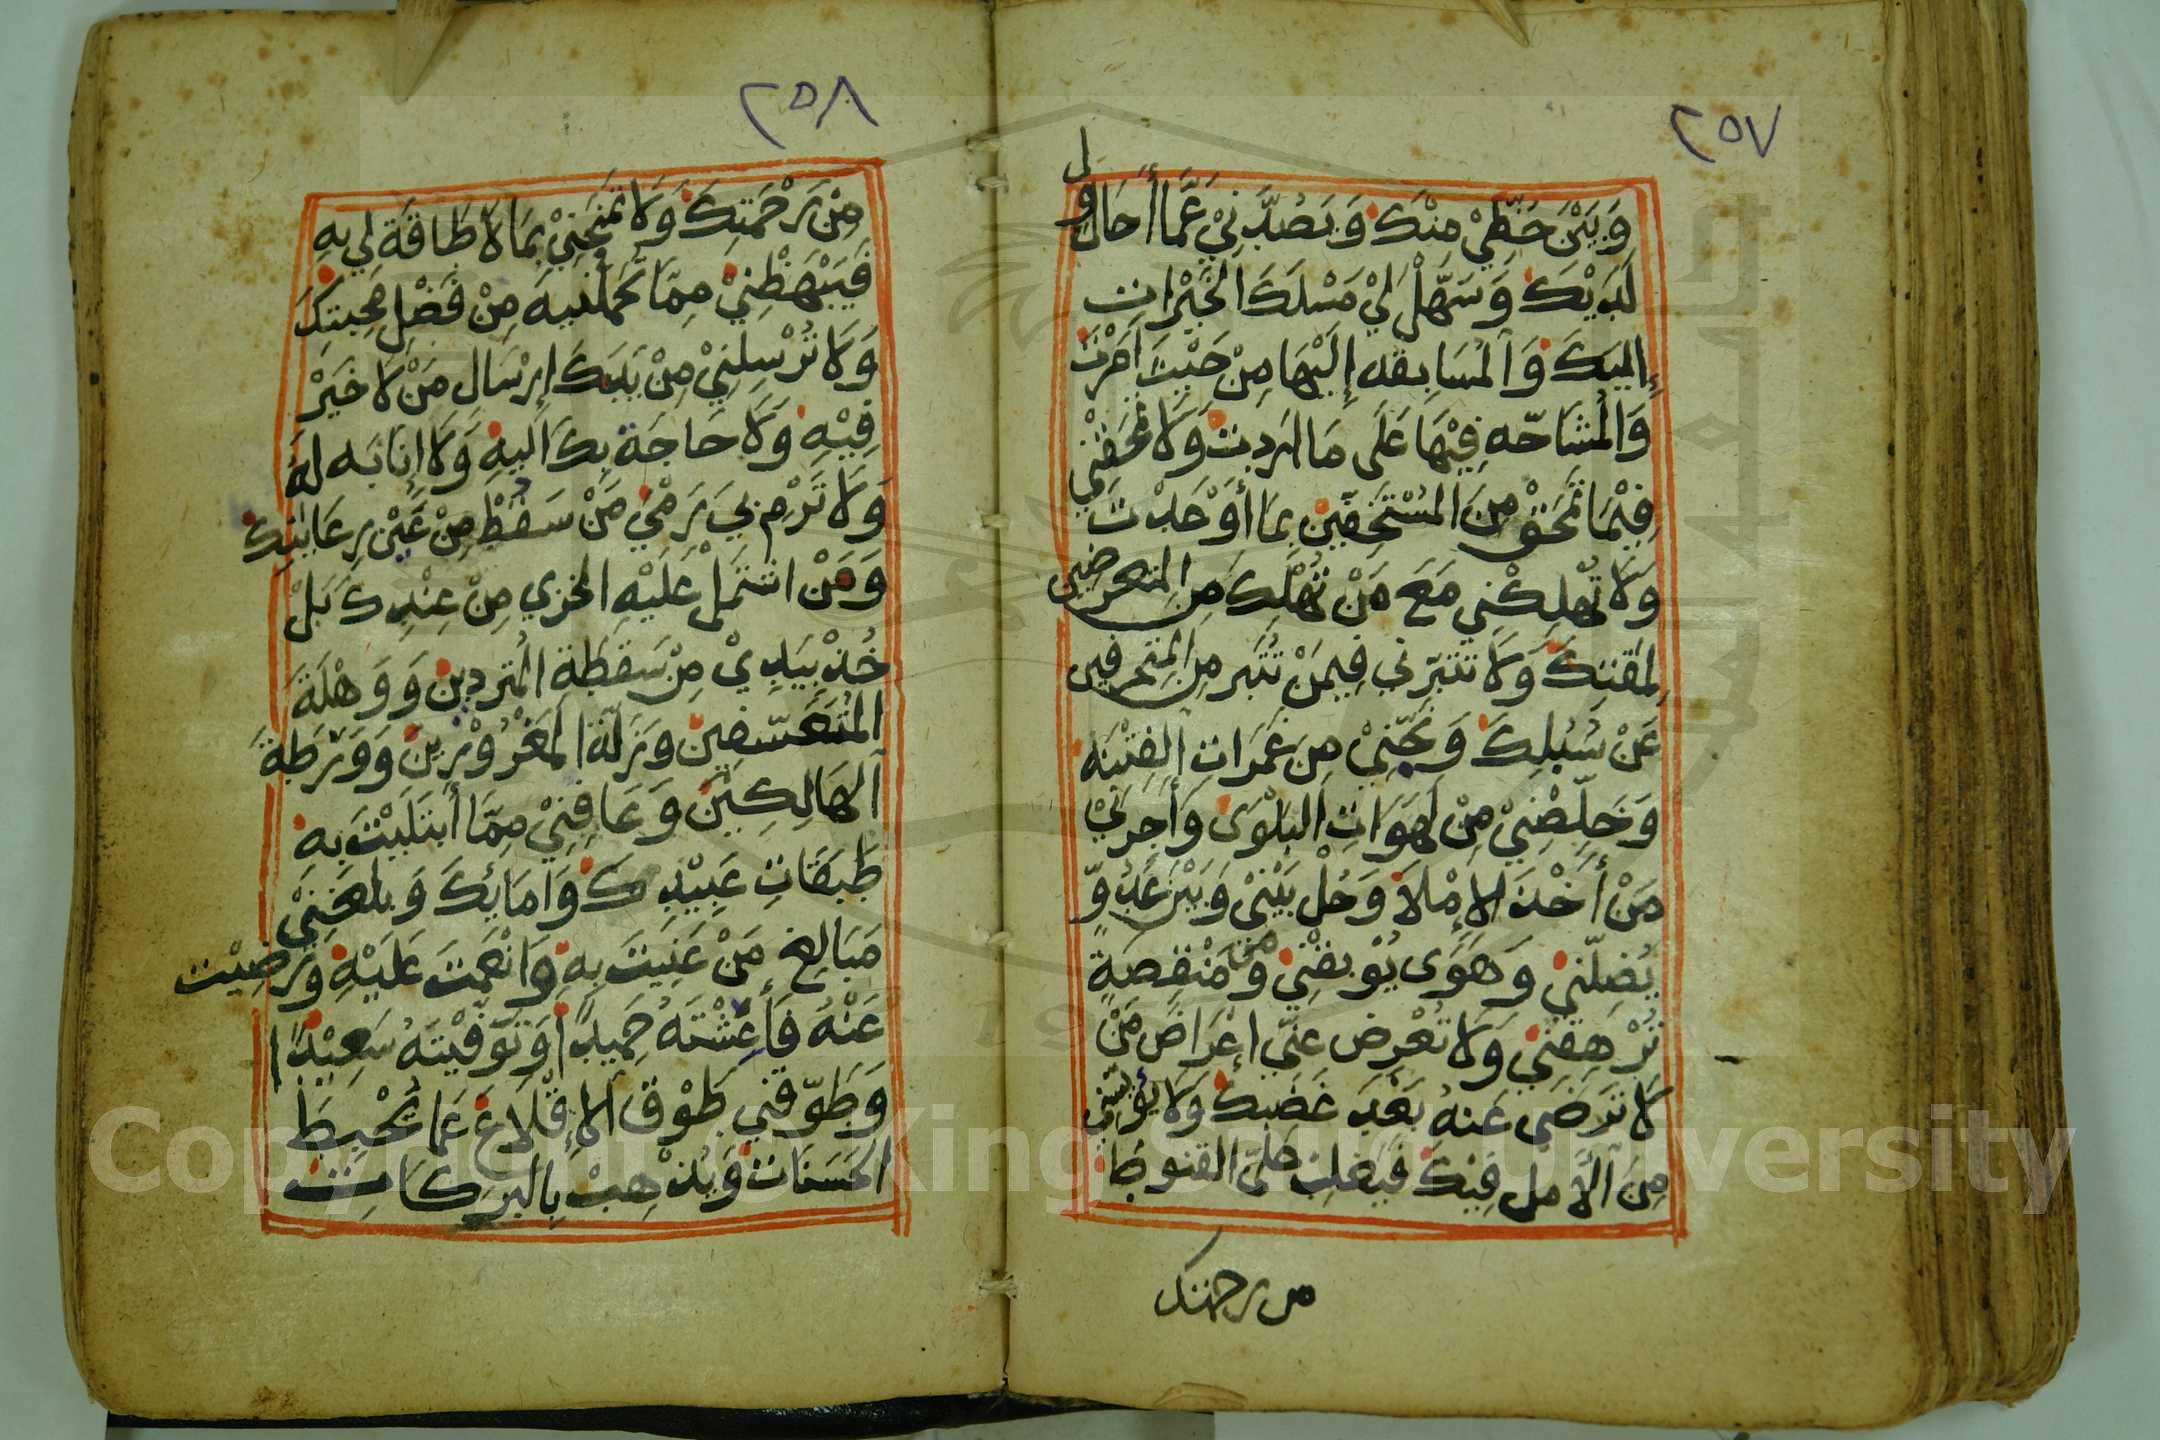 ٢٥٧
وَبَيْنَ حَظِّيْ مِنْكَ وَيَصُدَّنِيْ عَمَّا أُحَاوِلُ
لَدَيْكَ وَسَهِّلْ لِيْ مَسْلَكَ الْخَيْرَاتِ
إِلَيْكَ وَالْمُسَابِقَه إِلَيْهَا مِنْ حَيْثُ أَمَرْتَ
وَالْمُشَاحَّه فِيْهَا عَلَى مَا اَرَدتَ وَلَا تَمْحَقْنِي
فِيْمَا تَمْحَقُ مِنَ الْمُسْتَخِفِّيْنَ بِمَا أَوْعَدْتَ
وَلَا تُهْلِكْنِي مَعَ مَنْ تُهْلِكُ مِنَ الْمُتَعَرِّضِيْنَ
لِمَقْتِكَ وَلَا تُتَبِّرْنِي فِيمَنْ تُتَبِّر مِنَ الْمُنْحَرِفِين
عَنْ سُبُلِكَ وَنَجِّنِيْ مِنْ غَمَرَاتِ اَلْفِتْنَه
وَخَلِّصْنِيْ مِنْ لَهَوَاتِ الْبَلْوَى وَأَجِرْنِيْ
مِنْ أَخْذِ الْإِمْلَا وَحُلْ بَيْنِيْ وَبَيْنَ عَدُوٍّ
يُضِلُّنِي وَهَوًى يُوْبِقُنِيْ وَمَنْقِصَةٍ
تُرْهِقُنِي وَلَا تُعْرِضْ عَنِّي اِعْرَاضَ مَنْ
لَا تَرْضَى عَنهُ بَعْدَ غَضَبِكَ وَلَا تُؤْيِسْنِي
مِنَ الْأَمَلِ فِيْكَ فَيَغْلِبَ عَلَيَّ الْقُنُوطُ
من رحمتك
٢٥٨
مِنْ رَحْمَتِكَ وَلَا تَمْنَحْنِيْ بِمَا لَا طَاقَةَ لِي بِهِ
فَيَبْهَظُنِيْ مِمَّا تُحَمِّلُنِيهِ مِنْ فَضْلِ مَحَبَّتِكَ
وَلَا تُرْسِلْنِيْ مِنْ يَدِكَ اِرْسَالَ مَنْ لَا خَيْرَ
فِيْهِ وَلَا حَاجَةَ بِكَ اَلَيهِ وَلَا اِنَابَه لَهُ
وَلَا تَرْمِ بِيَ رَمْيَ مَنْ سَقَطَ مِنْ عَيْنِ رِعَايَتِكَ
وَمَنْ اشْتَمَلَ عَلَيْهِ الْخِزْيُ مِنْ عِنْدِكَ بَلْ
خُذْ بِيَدِيْ مِنْ سَقْطَةِ الْمُتَرَدِّينَ وَوَهْلَةِ
الْمُتَعَسِّفِيْنَ وَزَلَّةِ الْمَغْرُوْرِيْنَ وَوَرْطَةِ
الْهَالِكِيْنَ وَعَافِنِيْ مِمَّا أَبْتَلَيْتَ بِهِ
طَبَقَاتِ عَبِيْدِكَ وَاِمَائِكَ وَبَلِّغْنِيْ
مَبَالِغَ مَنْ عَنِيْتَ بِهِ وَانْعَمْتَ عَلَيْهِ وَرَضِيْتَ
عَنْهُ فَأَعَشْتَهُ حَمِيْدًا وَتَوَفَّيْتَهُ سَعِيْدًا
وَطَوِّقْنِي طَوْقَ الْإِقْلَاعِ عَمَا يُحْبِطُ
الْحَسَنَاتِ وَيُذْهِبُ بِالْبَرَكَاتِ
Copyright © King Saud University